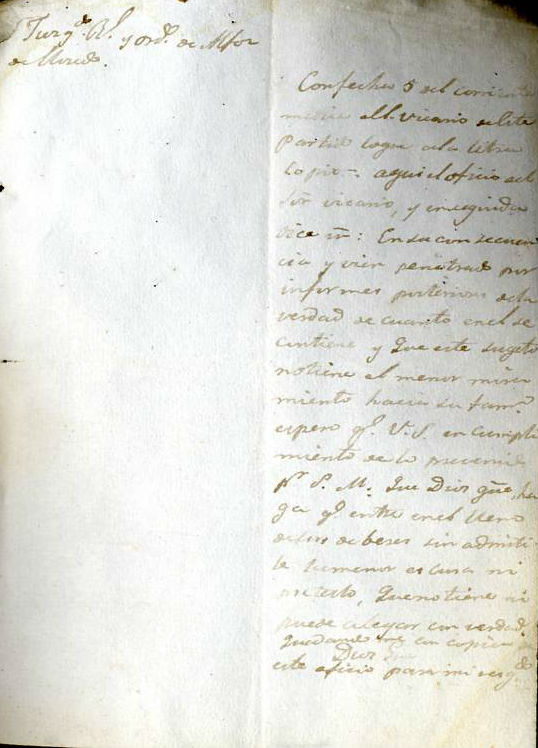 Juzgdo Rl. y ordo. de Alfor
de Lloredo.
Con fecha 5 del corriente
me dice el Sr. vicario de este
Partido lo que a la letra
Copio = aqui el oficio del
Sor vicario, y en seguida
dice
En su consecuen
cia y vien penetrado por
informes posteriores de la
verdad de cuanto en el se
contiene y que este sugeto
no tiene el menor mira
miento hacia su fama
espero qe. V. S. en cumpli
miento de lo prevenido
pr S. M. Que Dios gue, ha
ga qe. entre en el lleno
de sus deberes sin admitir
le la menor escusa ni
pretesto, que no tiene ni
puede alegar con verdad
quedandome con copia de
Dios gue
este oficio para mi resgdo